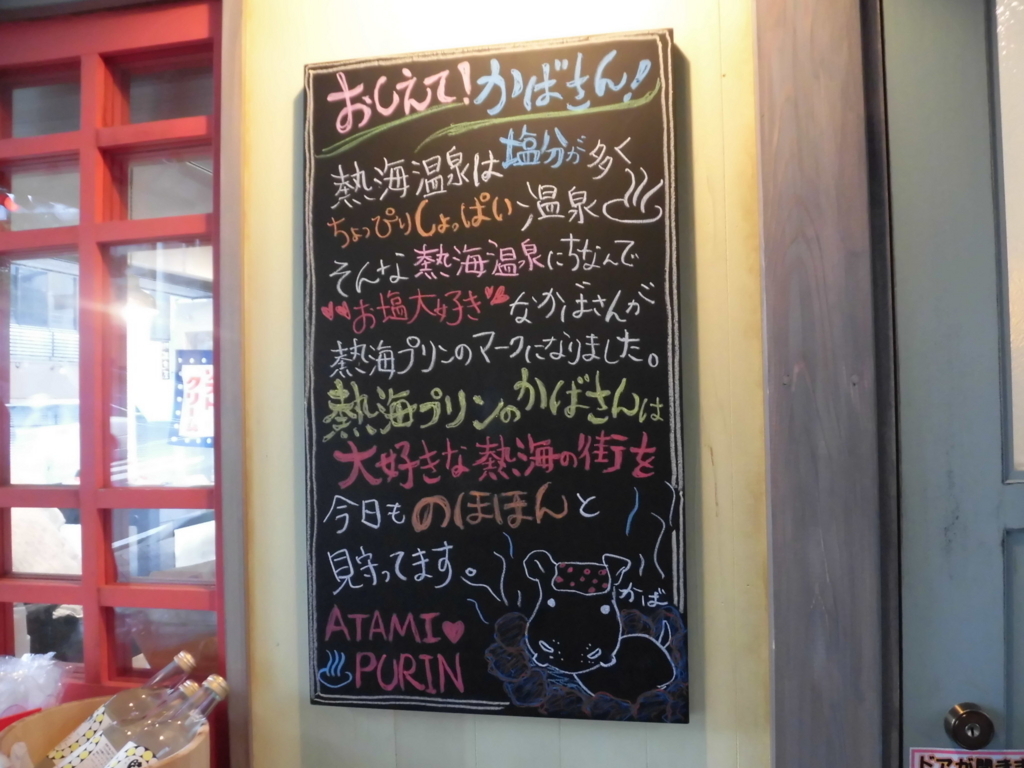 おしえて!かばさん!
熱海温泉は塩分が多く
ちょっぴりしょっぱい温泉♨
そんな熱海温泉にちなんで
♥♥お塩大好き♥なかばさんが
熱海プリンのマークになりました。
熱海プリンのかばさんは
大好きな熱海の街を
今日ものほほんと
見守ってます。
かば
ATAMI♥
♨PURIN
クリーム
ドアが開きま